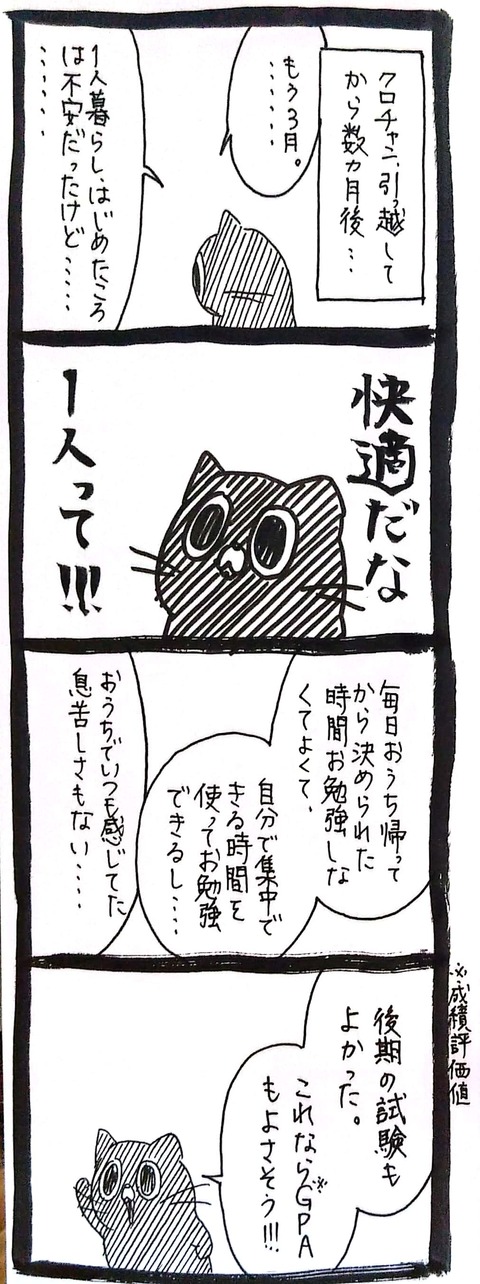 クロチャン、引っ越して
から数カ月後…
もう3月。
……
1人暮らし、はじめたころ
は不安だったけど……
……
快適だな
1人って!!!
毎日おうち帰って
から決められた
時間お勉強しな
くてよくて、
自分で集中で
きる時間を
使ってお勉強
できるし…
おうちでいつも感じてた
息苦しさもない…
後期の試験も
よかった。
これなら※GPA
もよさそう!!!
※成積評価値